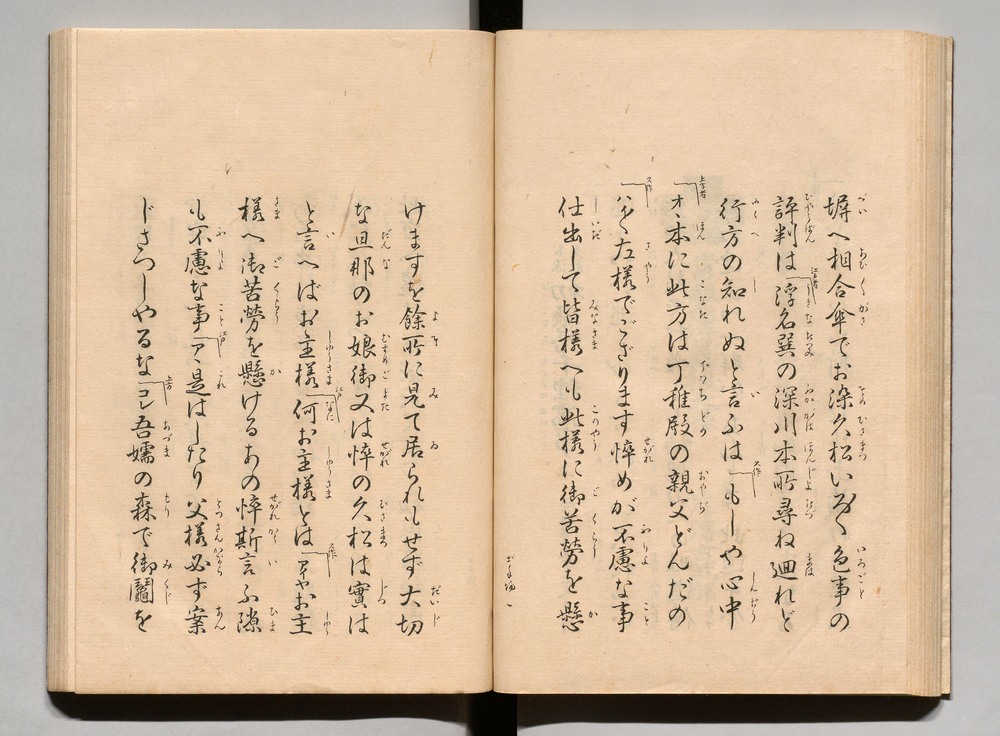 塀へ相合傘でお染久松いろ〱色事の
評判は浮名巽の深川本所尋ね廻れど
行方の知れぬと言ふは もしや心中
オヽ本に此方は丁稚殿の親父どんだの
ハイ左様でござります悴めが不慮な事
仕出して皆様へも此様に御苦労を懸
けますを餘所に見て居られもせず大切
な旦那のお娘御又は悴の久松は實は
と言へばお主様 何お主様とは アヤお主
様へ御苦労を懸けるあの悴斯言ふ隙
も不慮な事 アヽ是はしたり父様必ず案
じさつしやるな コレ吾嬬の森で御鬮を